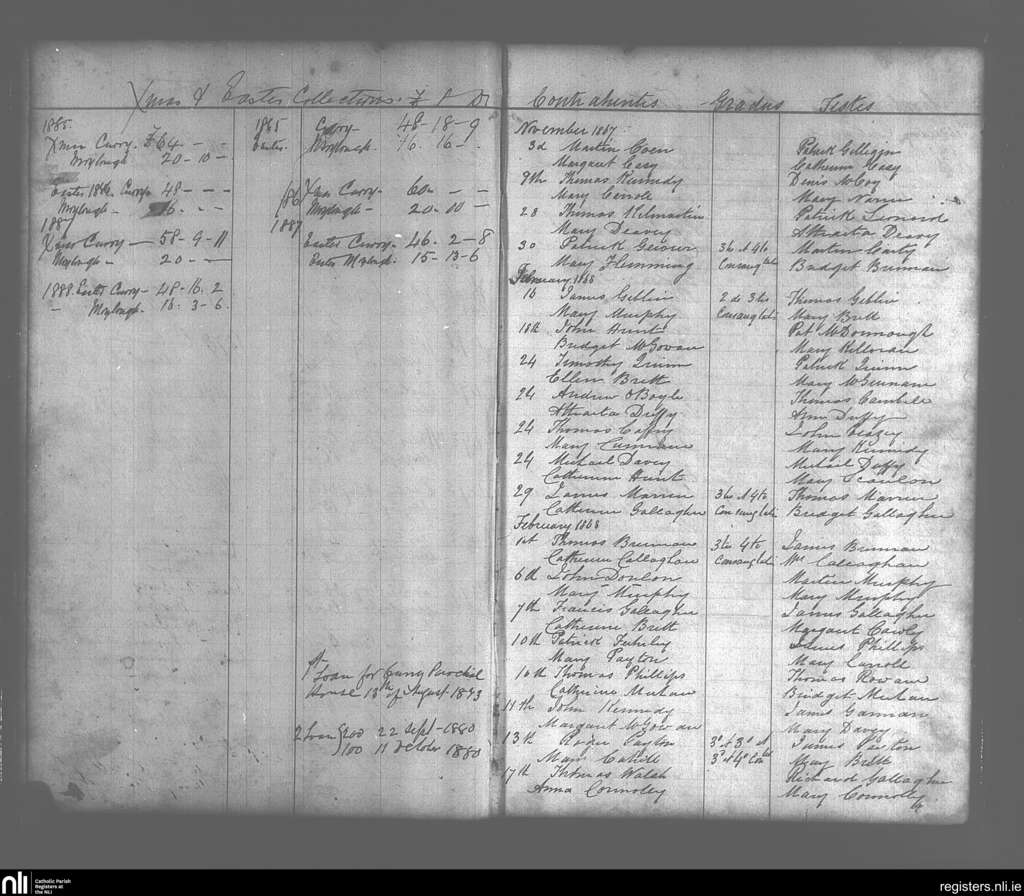 Xmas & Easter Collections. £ S D
1885.
Xmas Curry. £64 - -
Moylough 20 - 10 -
Easter 1886 Curry 48 - - -
Moylough - 16 - - -
1887
Xmas Curry - 58 - 9 - 11
Moylough - 20 - -
1888 Easter Curry - 48 - 16. 2
- Moylough - 16. 3 - 6.
1885 Curry - 48 - 18 - 9
Easter. Moylough 16. 16 -
1886 Xmas Curry - 60 - -
Moylough - 20 - 10 -
1887
Easter Curry - 46. 2 - 8
Easter Moylough. 15 - 13 - 6
1st Loan for Curry Parochial
House 13th of August 1873
2 Loan £200 22 Sept - 1880
100 11 October 1880
Contrahentes Gradus Testes
November 1867
3d Martin Coen Patrick Gilligan
Margaret Casy Catherine Casy
9th Thomas Kennedy Denis McCoy
Mary Carrole Mary
28 Thomas Kilmartin Patrick Leonard
Mary Deavey Attracta Deavy
30 Patrick 3 to et 4to Martin
Mary Flemming Consanguitatis Bridget Brennan
February 1868
16 James Giblin 2 de 3tio Thomas Giblin
Mary Murphy Mary Brett
18th John Hunt Pat McDonnough
Bridget McGowan Mary Killoran
24 Timothy Quinn Patrick Quinn
Ellen Brett Mary
24 Andrew O Boyle Thomas
Attracta Duffy Ann Duffy
24 Thomas Caffry John
Mary Mary Kennedy
24 Michael Davey Michael Duffy
Catherine Hunt Mary Scanlon
29 James Marren 3to et 4to Thomas Marren
Catherine Gallagher Bridget Gallagher
February 1868
1st Thomas Brennan 3to 4to James Brennan
Catherine Callaghan Callaghan
6th John Donlon Martin Murphy
Mary Murphy Mary Murphy
7th Francis Gallagher James Gallagher
Catherine Brett Margaret Cawly
10th Patrick James Phillips
Mary Payton Mary Carrole
10th Thomas Phillips Thomas Rowan
Catherine Meehan Bridget Meehan
11th John Kennedy James Gannan
Margaret McGowan Mary Davey
13th Roger Payton 3o et 3o et James Payton
Mary Cahill 3o et 4o Mary Brett
17th Thomas Walsh Richard Gallagher
Anna Connolly Mary Connolly
nli
Catholic Parish
Registers at
the NLI
registers.nli.ie